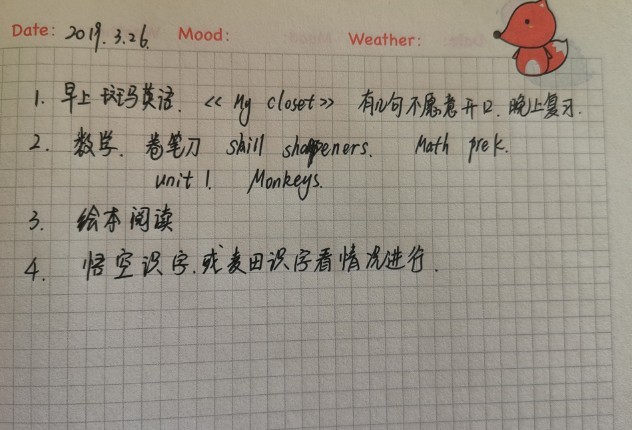 Date: 2019.3.26. Mood: Weather:
1. 早上 斑马英语. 《My closet》 有几句不愿意开口. 晚上复习.
2. 数学. 卷笔刀 skill sharpeners. Math prek.
unit 1. Monkeys.
3. 绘本阅读
4. 悟空识字.或麦田识字看情况进行.